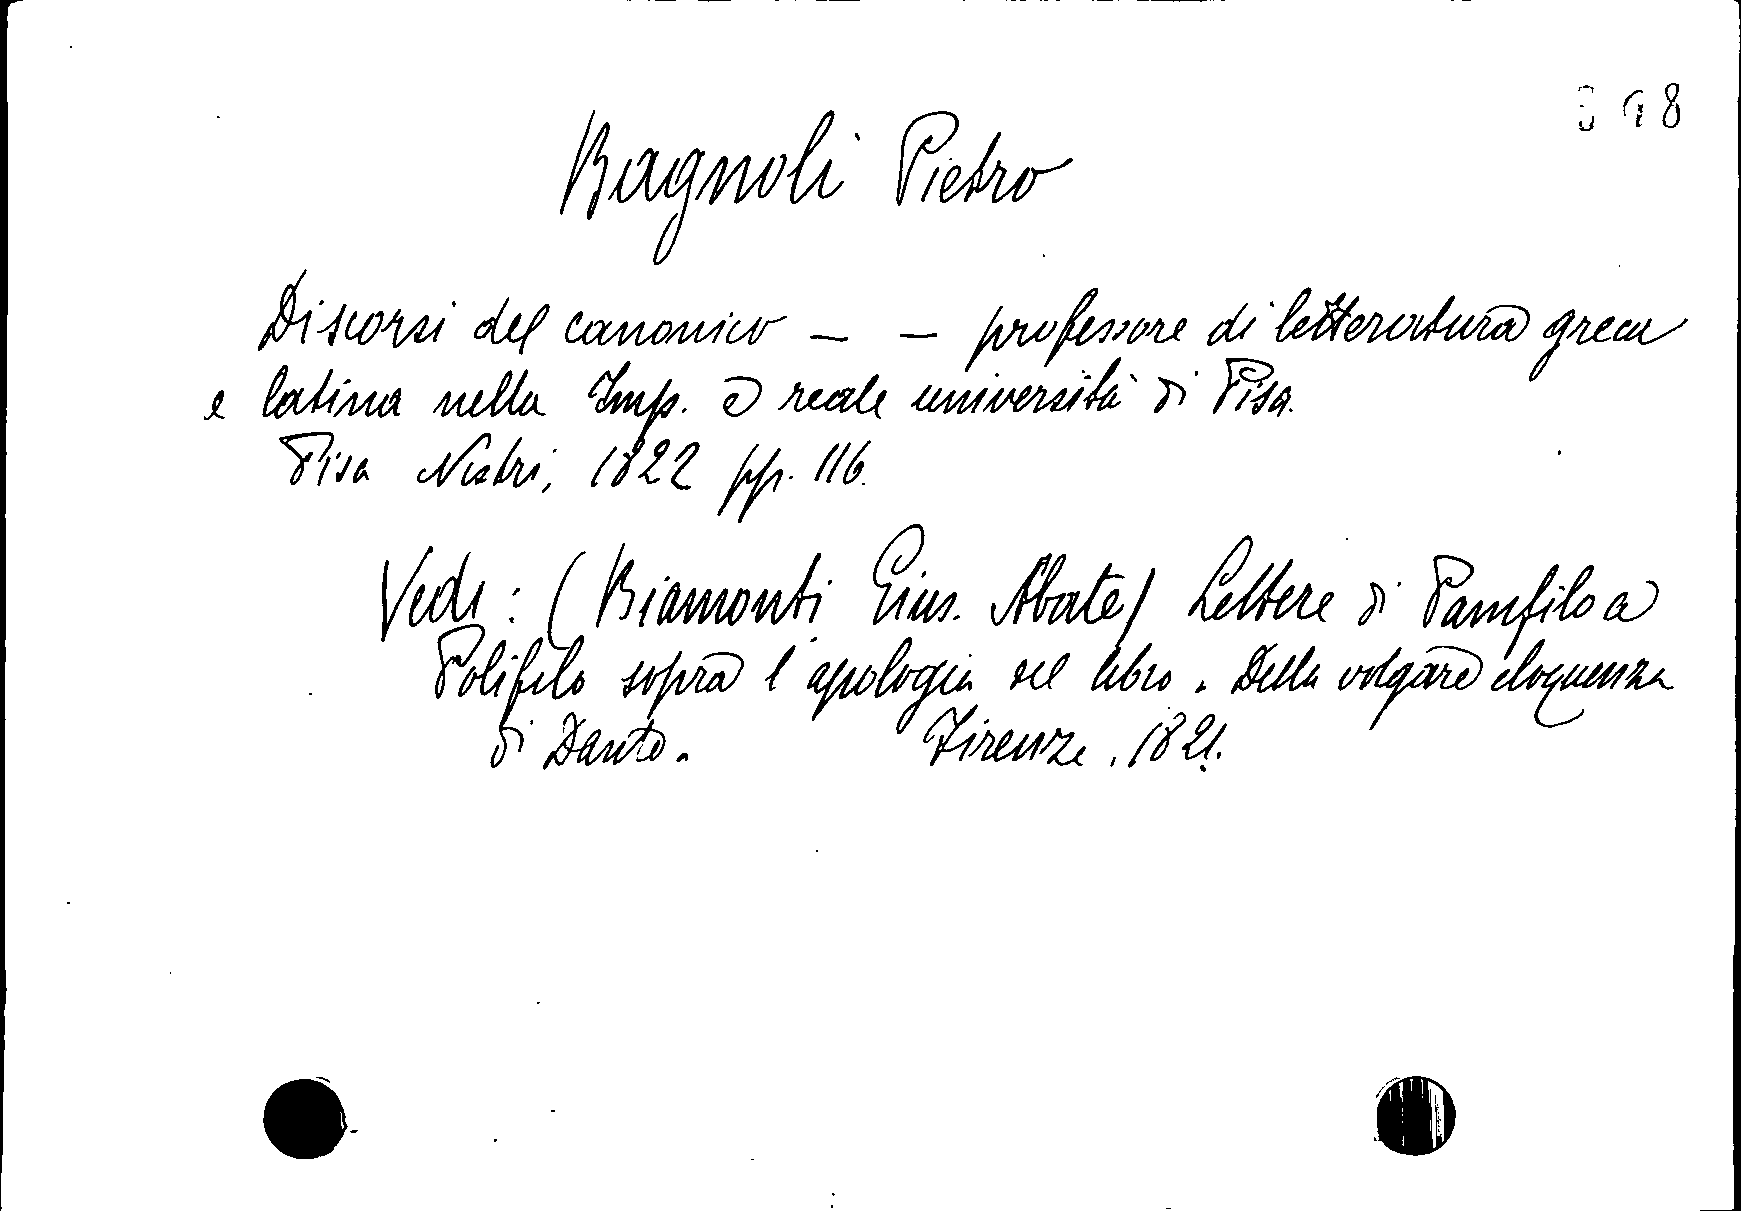 Bagnoli Pietro
Discorsi del canonico — — professore di letteratura greca
e latina nella Imp. e reale università di Pisa.
Pisa Nistri, 1822 pp. 116.
Vedi: (Biamonti Gius. Abate) Lettere di Pamfilo a
Polifilo sopra l'apologia del libro. Della volgare eloquenza
di Dante. Firenze, 1821.